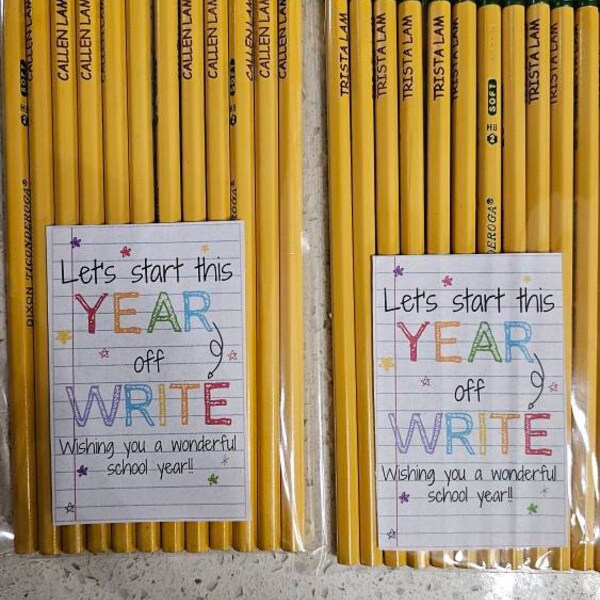 CALLEN LAM
CALLEN LAM
CALLEN LAM
CALLEN LAM
CALLEN LAM
CALLEN LAM
CALLEN LAM
CALLEN LAM
SOFT
HB
2
DIXON TICONDEROGA®
Let's start this
YEAR
off
WRITE
Wishing you a wonderful
school year!!
TRISTA LAM
TRISTA LAM
TRISTA LAM
TRISTA LAM
TRISTA LAM
TRISTA LAM
TRISTA LAM
SOFT
HB
2
DEROGA®
Let's start this
YEAR
off
WRITE
Wishing you a wonderful
school year!!